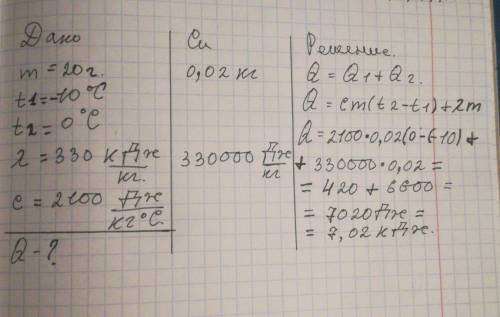 Дано
m = 20 г.
t1 = -10 °C
t2 = 0 °C
λ = 330 кДж/кг.
c = 2100 Дж/кг°C.
Q - ?
Си
0,02 кг
330000 Дж/кг
Решение.
Q = Q1 + Q2.
Q = cm(t2 - t1) + λm
Q = 2100·0,02(0-(-10) +
+ 330000·0,02 =
= 420 + 6600 =
= 7020 Дж =
= 7,02 кДж.